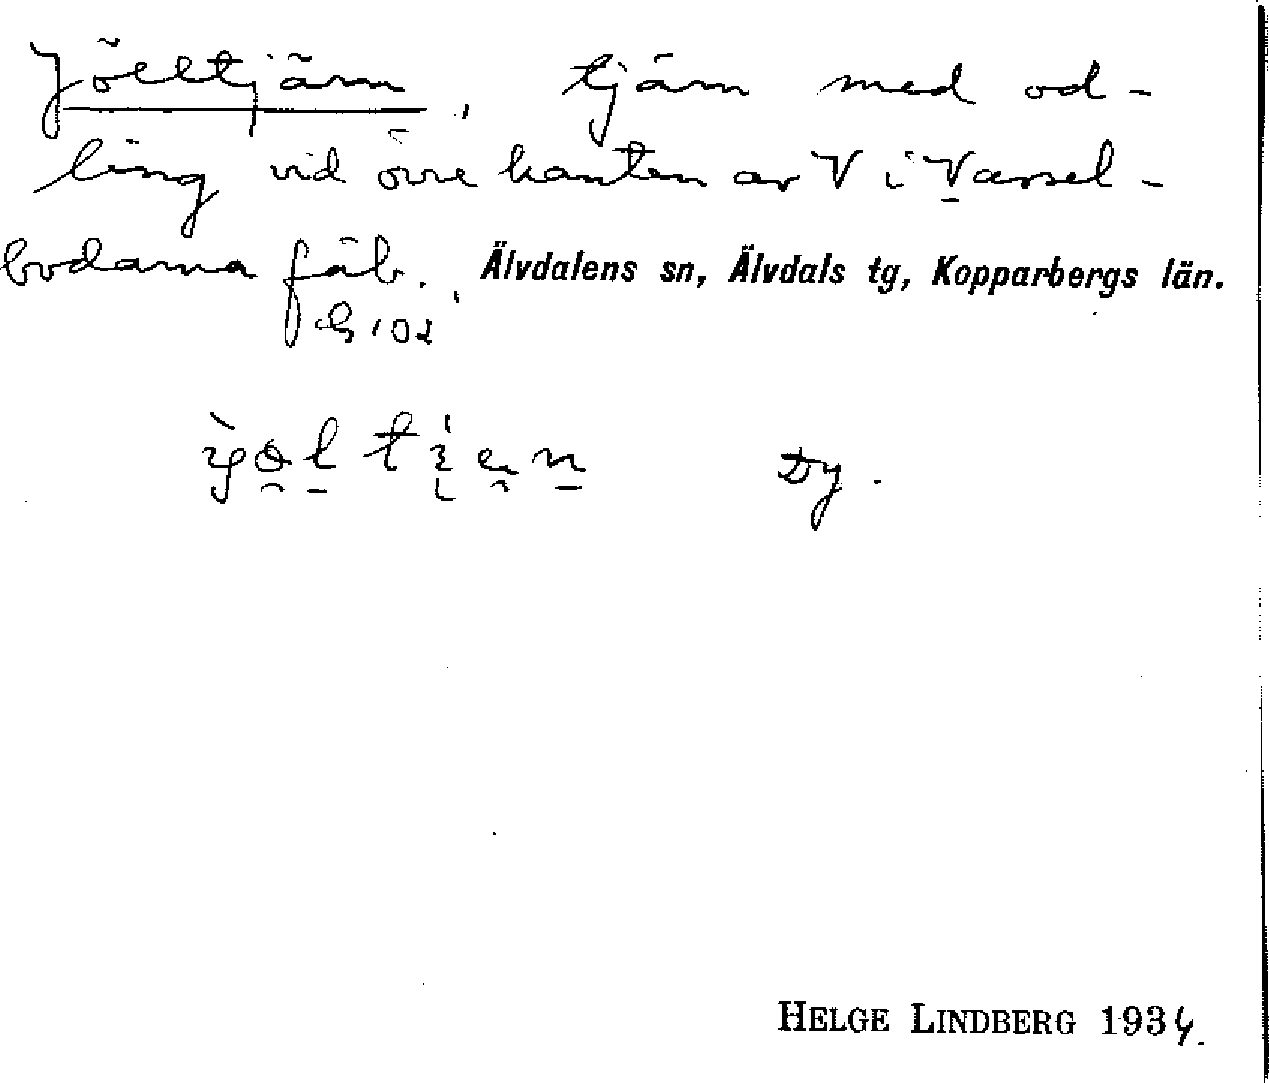 Jölltjärn, tjärn med od-
ling vid övre kanten av V i Vassel-
bodarna fäb. Älvdalens sn, Älvdals tg, Kopparbergs län.
Dy.
HELGE LINDBERG 1934.